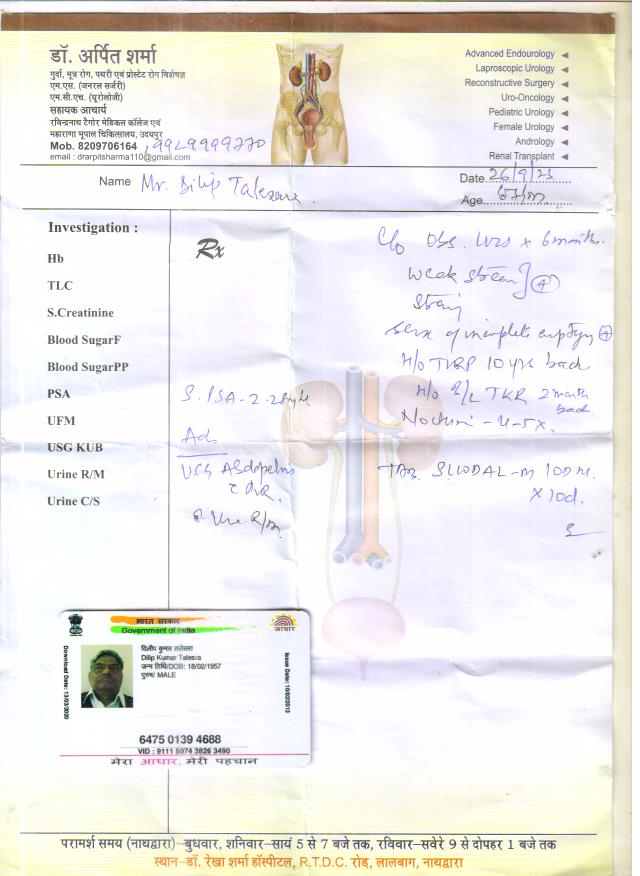 डॉ. अर्पित शर्मा
गुर्दा, मूत्र रोग, पथरी एवं प्रोस्टेट रोग विशेषज्ञ
एम.एस. (जनरल सर्जरी)
एम.सी.एच. (यूरोलोजी)
सहायक आचार्य
रविन्द्रनाथ टैगोर मेडिकल कॉलेज एवं
महाराणा भूपाल चिकित्सालय, उदयपुर
Mob. 8209706164, 9929999770
email : drarpitsharma110@gmail.com
Advanced Endourology
Laproscopic Urology
Reconstructive Surgery
Uro-Oncology
Pediatric Urology
Female Urology
Andrology
Renal Transplant
Name Mr. Dilip Talesara
Date 26/9/23
Age
Investigation :
Hb
TLC
S.Creatinine
Blood SugarF
Blood SugarPP
PSA
UFM
USG KUB
Urine R/M
Urine C/S
Rx
S. PSA - 2.28
Adv
USG Abdopelvis
c PVR.
Urine R/M
C/o Obs. LUTS x 6 months.
Weak stream
Strain
Sense of incomplete emptying +
H/o TURP 10 yrs back
H/o B/L TKR 2 month
back
Nocturia - 4-5x.
Tab. SILODAL-M
x 10d.
भारत सरकार
Government of India
आधार
दिलीप कुमार तलेसरा
Dilip Kumar Talesra
जन्म तिथि/DOB: 18/02/1957
पुरुष/ MALE
Download Date: 13/03/2020
Issue Date: 10/02/2013
6475 0139 4688
VID : 9111 5074 3826 3490
मेरा आधार, मेरी पहचान
परामर्श समय (नाथद्वारा)–बुधवार, शनिवार–सायं 5 से 7 बजे तक, रविवार–सवेरे 9 से दोपहर 1 बजे तक
स्थान–डॉ. रेखा शर्मा हॉस्पीटल, R.T.D.C. रोड़, लालबाग, नाथद्वारा